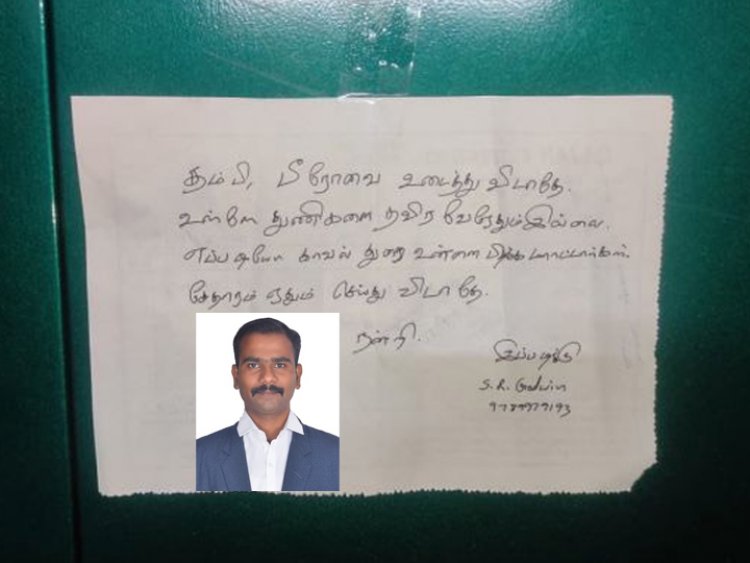 தம்பி, பீரோவை உடைத்து விடாதே.
உள்ளே துணிகளை தவிர வேறேதும் இல்லை.
எப்படியோ காவல் துறை உன்னை பிடிக்க மாட்டார்கள்.
சேதாரம் ஏதும் செய்து விடாதே.
நன்றி.
இப்படிக்கு
S. R.